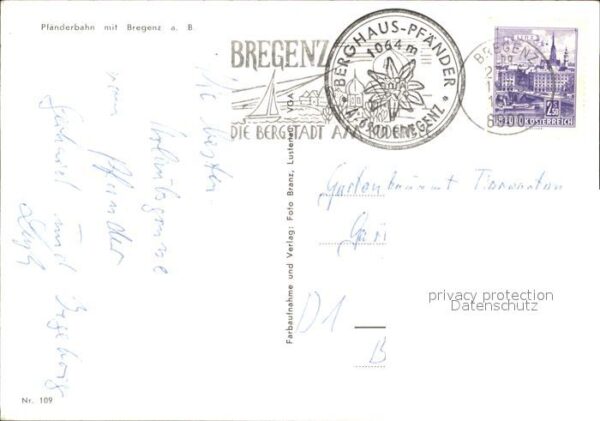 Pfänderbahn mit Bregenz a. B.
BREGENZ
DIE BERGSTADT AM
BERGHAUS-PFÄNDER
1064 m
A-6900 BREGENZ
BREGENZ
6900
LINZ
S 2.50
REPUBLIK ÖSTERREICH
Die besten
Urlaubsgrüsse
vom Pfänder
Gerhard und Ingeborg
Gartenbauamt
D1
B
privacy protection
Datenschutz
Farbaufnahme und Verlag: Foto Branz, Lustenau, VGA
Nr. 109